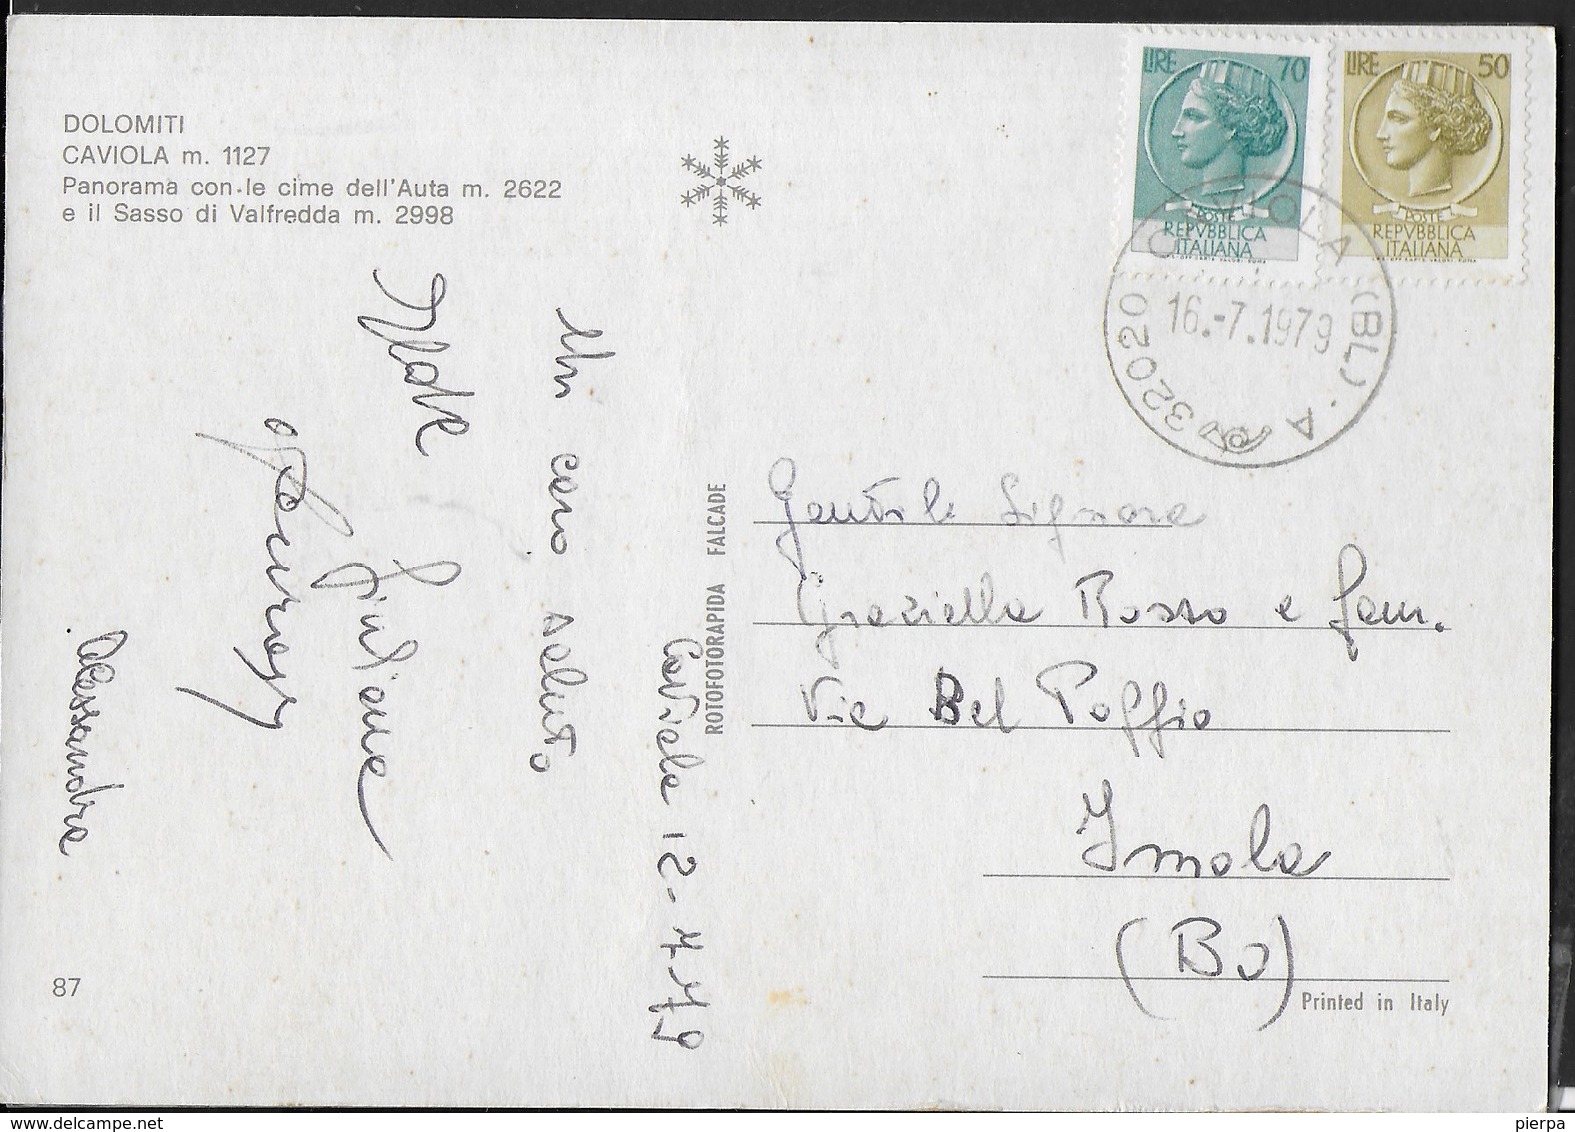 DOLOMITI
CAVIOLA m. 1127
Panorama con le cime dell'Auta m. 2622
e il Sasso di Valfredda m. 2998
LIRE 70
POSTE
REPVBBLICA
ITALIANA
LIRE 50
POSTE
REPVBBLICA
ITALIANA
32020 CAVIOLA (BL) · A
16.-7.1979
Caviola 12-7-79
Un caro saluto
Giuliana
Alessandra
ROTOFOTORAPIDA FALCADE
Gentile Signora
Graziella Rosso e fam.
Via Bel Poggio
Imola
(Bo)
87
Printed in Italy
pierpa